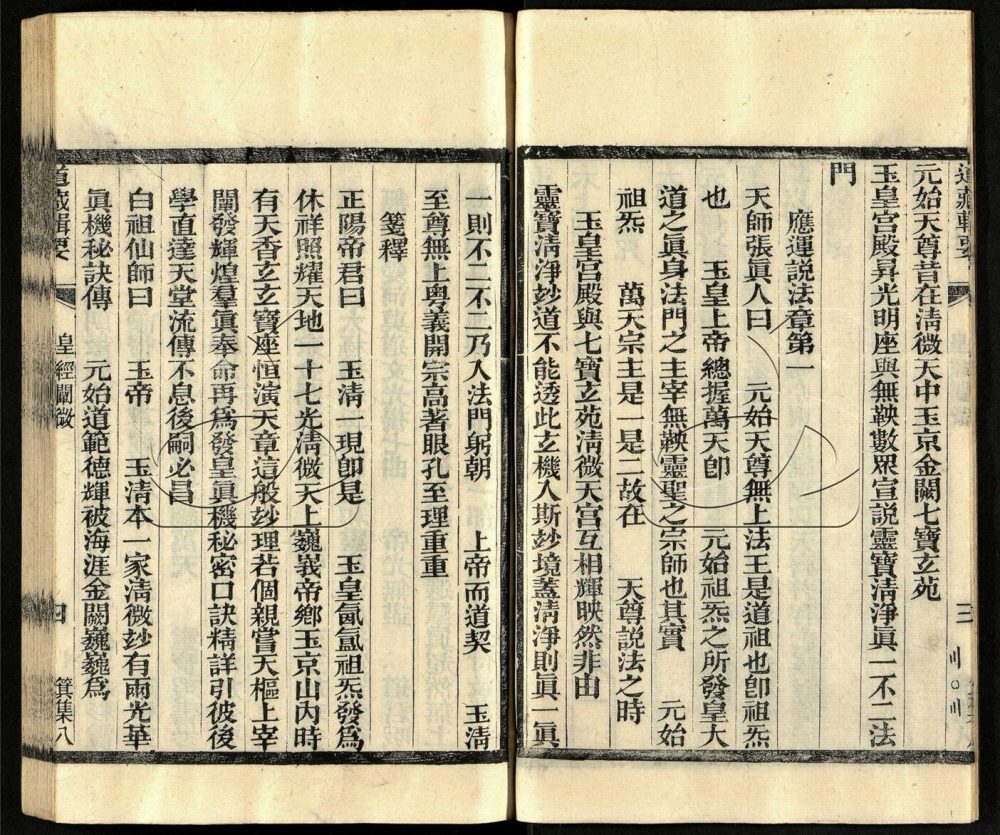 元始天尊昔在淸微天中玉京金闕七寶玄苑
玉皇宮殿昇光明座與無鞅數眾宣説靈寶淸淨眞一不二法
門
應運説法章第一
天師張眞人曰 元始天尊無上法王是道祖也卽祖炁
也 玉皇上帝總握萬天卽 元始祖炁之所發皇大
道之眞身法門之主宰無鞅靈聖之宗師也其實 元始
祖炁 萬天宗主是一是二故在 天尊説法之時
玉皇宮殿與七寶玄苑淸微天宮互相輝映然非由
靈寶淸淨玅道不能透此玄機入斯玅境蓋淸淨則眞一眞
道藏輯要
三
一則不二不二乃入法門躬朝 上帝而道契 玉淸
至尊無上粤義開宗高著眼孔至理重重
箋釋
正陽帝君曰 玉淸一現卽是 玉皇氤氳祖炁發爲
休祥照耀天地一十七光淸微天上巍峩帝鄉玉京山內時
有天香玄玄寶座恒演天章這般玅理若個親嘗天樞上宰
闡發輝煌羣眞奉命再爲發皇眞機秘密口訣精詳引彼後
學直達天堂流傳不息後嗣必昌
白祖仙師曰 玉帝 玉淸本一家淸微玅有兩光華
眞機秘訣傳 元始道範德輝被海涯金闕巍巍爲
道藏輯要
皇經闡微
四
箕集八